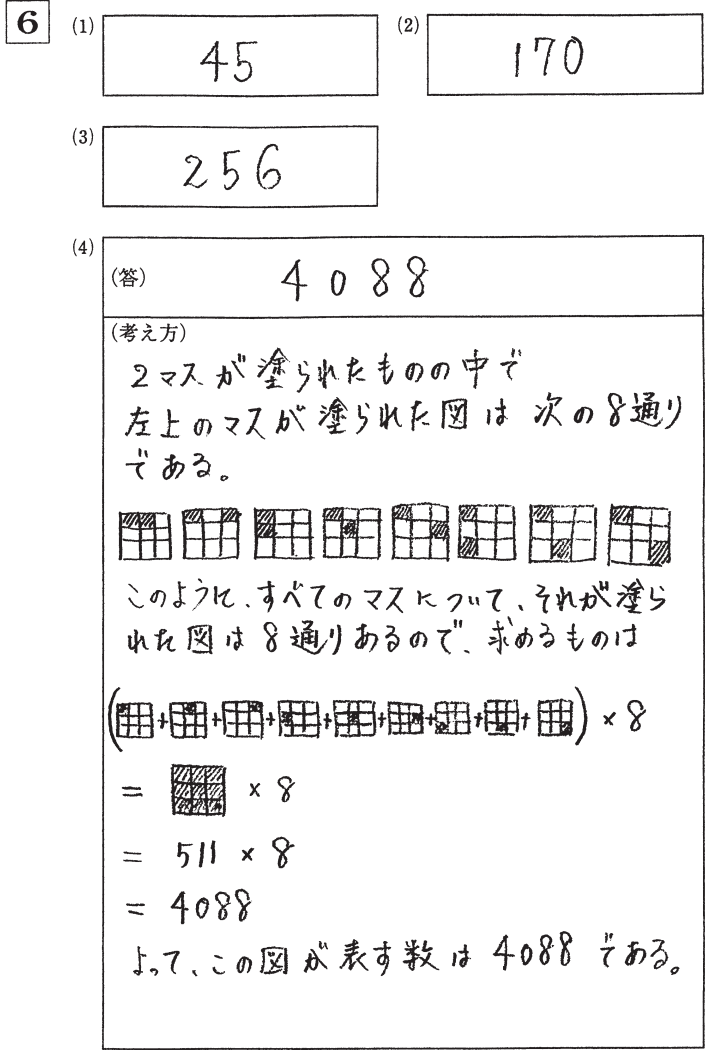 6
(1) 45 (2) 170
(3) 256
(4)
(答) 4088
(考え方)
2マスが塗られたものの中で
左上のマスが塗られた図は 次の8通り
である。
このように、すべてのマスについて、それが塗ら
れた図は8通りあるので、求めるものは
( + + + + + + + + ) × 8
= × 8
= 511 × 8
= 4088
よって、この図が表す数は4088である。